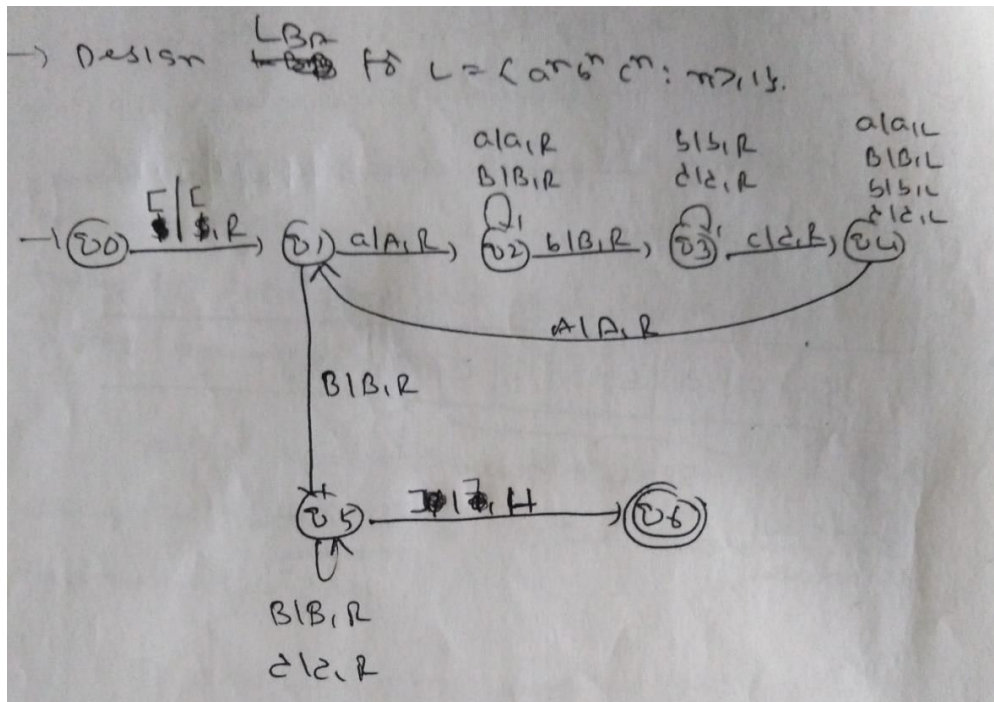 → Design LBA for L = {aⁿbⁿcⁿ : n≥1}.
a|a,R
B|B,R
b|b,R
c|c,R
a|a,L
B|B,L
b|b,L
c|c,L
→ q0 [|[,R q1 a|A,R q2 b|B,R q3 c|c,R q4
A|A,R
B|B,R
q5 ]|],H q6
B|B,R
c|c,R